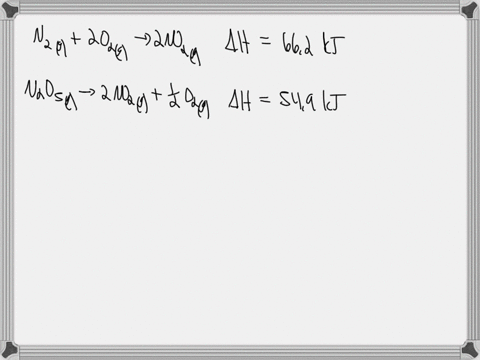 N₂(g) + 2O₂(g) → 2NO₂(g) ΔH = 66.2 kJ
N₂O₅(g) → 2NO₂(g) + ½ O₂(g) ΔH = 54.9 kJ